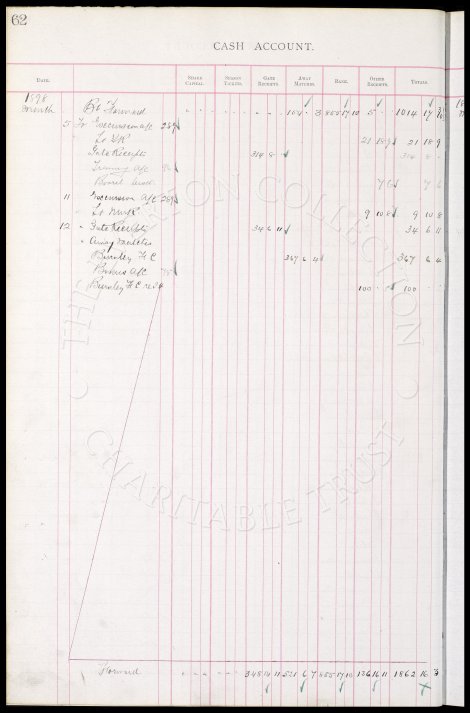 62
CASH ACCOUNT.
DATE. SHARE CAPITAL. SEASON TICKETS. GATE RECEIPTS. AWAY MATCHES. BANK. OTHER RECEIPTS. TOTALS.
1898
Forward 3 855 17 10 5 1014 17
5 To Excursion a/c 289
21 18 9 21 18 9
Gate Receipts 314 8 314 8
a/c
7 6 7 6
11 Excursion a/c 289
9 10 8 9 10 8
12 " Gate Receipts 34 6 11 34 6 11
" Away Matches
Burnley F C 367 6 4 367 6 4
a/c
Burnley F C 100 100
Forward 348 14 11 521 6 7 855 17 10 136 16 11 1862 16 3
THE COLLECTION
CHARITABLE TRUST